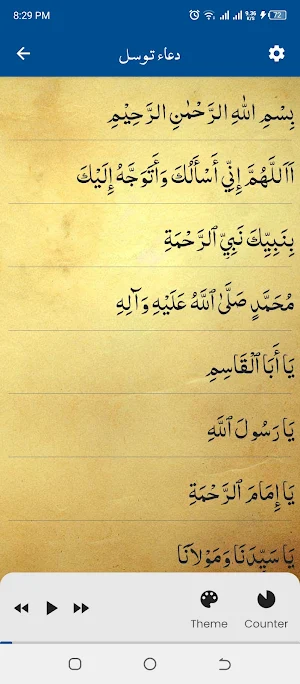 8:29 PM 9.36 K/s 72
دعاء توسل
بِسْمِ اللهِ الرَّحْمٰنِ الرَّحِيْمِ
اَاَللّٰهُمَّ إِنِّي أَسْأَلُكَ وَأَتَوَجَّهُ إِلَيْكَ
بِنَبِيِّكَ نَبِيِّ ٱلرَّحْمَةِ
مُحَمَّدٍ صَلَّىٰ ٱللَّهُ عَلَيْهِ وَآلِهِ
يَا أَبَا ٱلْقَاسِمِ
يَا رَسُولَ ٱللَّهِ
يَا إِمَامَ ٱلرَّحْمَةِ
يَا سَيِّدَنَا وَمَوْلاَنَا
Theme Counter